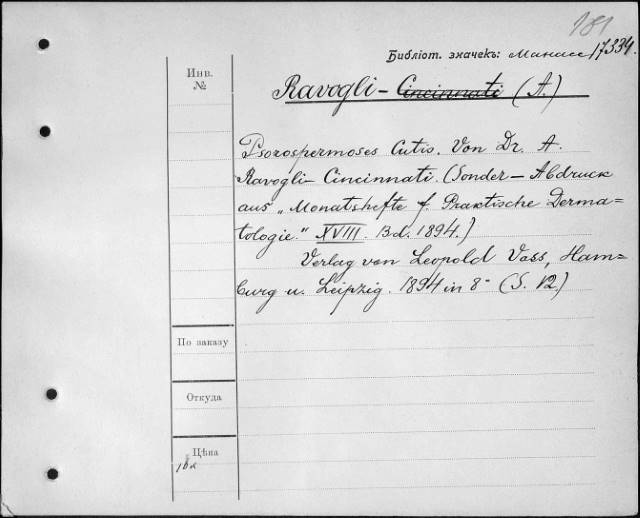 181
Библіот. значекъ: Манасс 17334.
Инв.
№
Ravogli - Cincinnati (A.)
Psorospermoses Cutis. Von Dr. A.
Ravogli - Cincinnati. (Sonder - Abdruck
aus „Monatshefte f. Praktische Derma=
tologie." XVIII. Bd. 1894.)
Verlag von Leopold Voss, Ham=
burg u. Leipzig. 1894 in 8° (S. 12.)
По заказу
Откуда
Цѣна